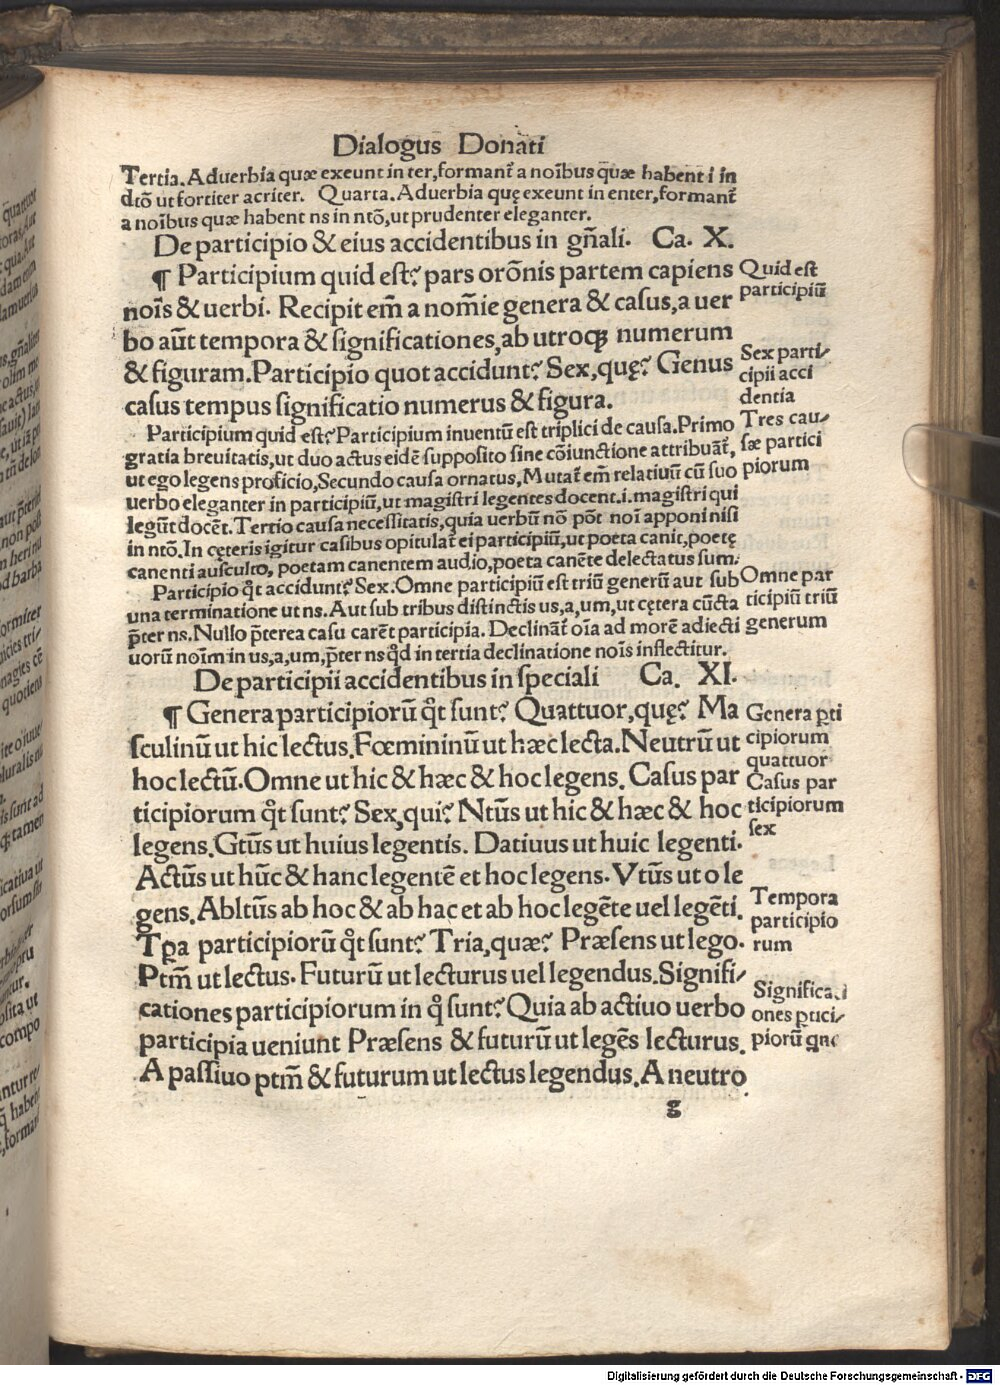 Dialogus Donati
Tertia. Aduerbia quæ exeunt in ter, formant̃ a noĩbus quæ habent i in
dtõ ut fortiter acriter. Quarta. Aduerbia quę exeunt in enter, formant̃
a noĩbus quæ habent ns in ntõ, ut prudenter eleganter.
De participio & eius accidentibus in gñali. Ca. X.
¶ Participium quid est? pars orõnis partem capiens
noĩs & uerbi. Recipit em̃ a nomĩe genera & casus, a uer
bo aũt tempora & significationes, ab utroqꝫ numerum
& figuram. Participio quot accidunt? Sex, quę? Genus
casus tempus significatio numerus & figura.
Quid est
participiũ
Sex parti/
cipii acci
dentia
Participium quid est? Participium inuentũ est triplici de causa. Primo
gratia breuitatis, ut duo actus eidẽ supposito sine cõiunctione attribuãt̃,
ut ego legens proficio, Secundo causa ornatus, Mutat̃ em̃ relatiuũ cũ suo
uerbo eleganter in participiũ, ut magistri legentes docent .i. magistri qui
legũt docẽt. Tertio causa necessitatis, quia uerbũ nõ põt noĩ apponi nisi
in ntõ. In cęteris igitur casibus opitulat̃ ei participiũ, ut poeta canit, poetę
canenti ausculto, poetam canentem audio, poeta canẽte delectatus sum.
Tres cau/
sæ partici
piorum
Participio q̃t accidunt? Sex. Omne participiũ est triũ generũ aut sub
una terminatione ut ns. Aut sub tribus distinctis us, a, um, ut cętera cũcta
p̃ter ns. Nullo p̃terea casu carẽt participia. Declinãt̃ oĩa ad morẽ adiecti
uorũ noĩm in us, a, um, p̃ter ns q̃d in tertia declinatione noĩs inflectitur.
Omne par
ticipiũ triũ
generum
De participii accidentibus in speciali Ca. XI.
¶ Genera participiorũ q̃t sunt? Quattuor, quę? Ma
sculinũ ut hic lectus. Fœmininũ ut hæc lecta. Neutrũ ut
hoc lectũ. Omne ut hic & hæc & hoc legens. Casus par
ticipiorum q̃t sunt? Sex, qui? Ntũs ut hic & hæc & hoc
legens. Gtũs ut huius legentis. Datiuus ut huic legenti.
Actũs ut hũc & hanc legentẽ et hoc legens. Vtũs ut o le
gens. Abltũs ab hoc & ab hac et ab hoc legẽte uel legẽti.
Tꝑa participiorũ q̃t sunt? Tria, quæ? Præsens ut lego.
Ptm̃ ut lectus. Futurũ ut lecturus uel legendus. Signifi/
cationes participiorum in q̃ sunt? Quia ab actiuo uerbo
participia ueniunt Præsens & futurũ ut legẽs lecturus.
A passiuo ptm̃ & futurum ut lectus legendus. A neutro
Genera ꝑti
cipiorum
quattuor
Casus par
ticipiorum
sex
Tempora
participio
rum
Significati
ones ꝑtici/
piorũ
g
Digitalisierung gefördert durch die Deutsche Forschungsgemeinschaft - DFG